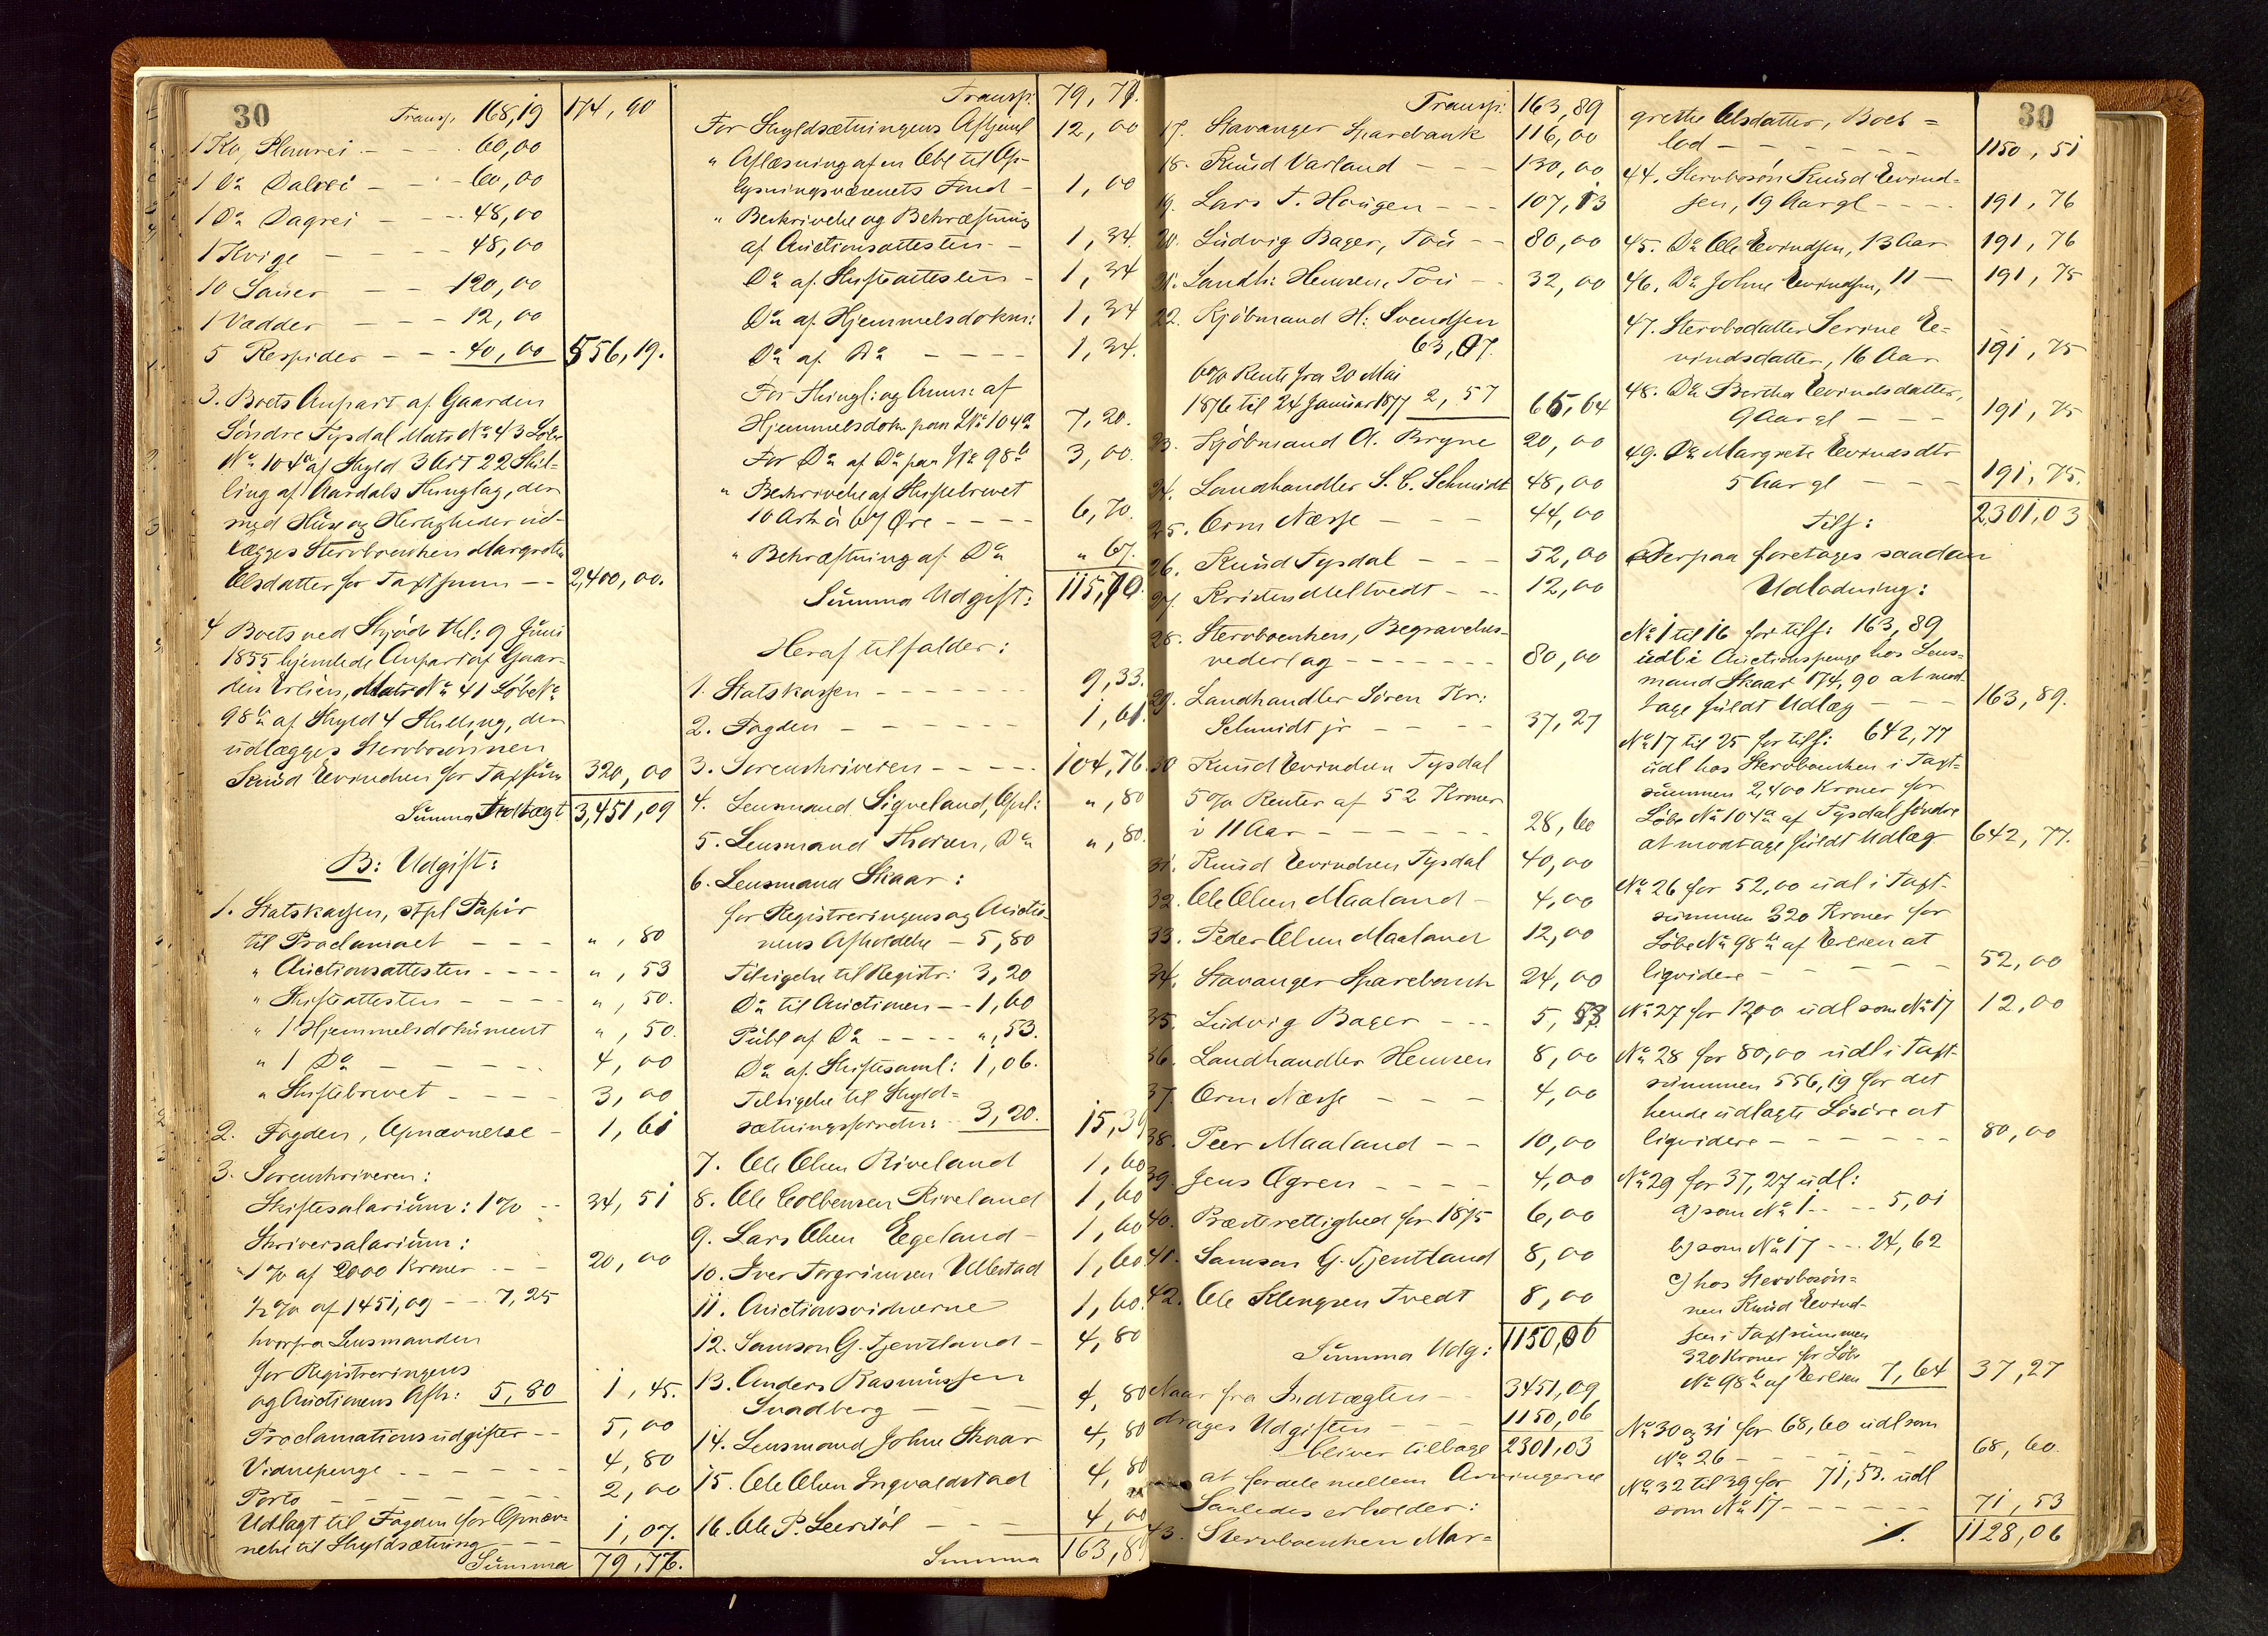 30
Transp. 168,19 174,90
1 Ko, Plumrei - - - 60,00
1 Do Dalrei - - - 60,00
1 Do Dagrei - - - 48,00
1 Kvige - - - 48,00
10 Sauer - - 120,00
1 Vædder - - - 12,00
5 Respider - - - 40,00 556,19.
3. Boets Anpart af Gaarden
Søndre Tysdal Matr No 43 Løbe
No 104a af Skyld 3 Ort 22 Skil-
ling af Aardals Thinglag, der
med Huse og Herligheder ud-
lægges Stervboenken Margrethe
Olsdatter for Taxtsum -- 2,400,00.
4 Boets ved Skjøde thl: 9 Juni
1855 hjemlede Anpart af Gaar-
den Erlien, Matr No 41 Løbe No
98b af Skyld 4 Skilling, der
udlægges Stervbosønnen
Knud Evindsen for Taxtsum 320,00
Summa Indtægt 3,451,09
B: Udgift:
1. Statskassen, stpl Papir
til Proclamaet - - - " , 80
" Auctionsattesten - - - - " , 53
" Skifteattesten - - - - " , 50.
" 1 Hjemmelsdokument " , 50
" 1 Do - - - - - 4,00
" Skiftebrevet - - - - 3,00
2. Fogden, Opnævnelse - 1,61
3. Sorenskriveren:
Skiftesalarium: 1% -- 34,51
Skriversalarium:
1% af 2000 Kroner - - 20,00
½% af 1451,09 - - 7,25
hvorfra Lensmanden
for Registreringens
og Auctionens Afh: 5,80 1,45.
Proclamationsudgifter - - 5,00
Vidnepenge - - - - - 4,80
Porto - - - - - - 2,00
Udlagt til Fogden for Opnæv-
nelse til Skyldsætning - - - 1,07.
Summa 79,78.
Transp: 79,78.
For Skyldsætningens Afhjeml 12,00
" Aflæsning af en Obl til Op-
lysningsvæsenets Fond - 1,00
" Beskrivelse og Bekræftning
af Auctionsattesten - - 1,34.
Do af Skifteattesten - 1,34
Do af Hjemmelsdokm: 1,34
Do af Do - - - - 1,34.
For Thingl: og Anm: af
Hjemmelsdok paa LNo 104a 7,20.
For Do af Do paa LNo 98b 3,00.
" Beskrivelse af Skiftebrevet
10 Ark à 67 Øre - - - - 6,70.
" Bekræftning af Do " 67.
Summa Udgift: 115,70.
Heraf tilfalder:
1. Statskassen - - - - - - 9,33.
2. Fogden - - - - - - 1,61.
3. Sorenskriveren - - - - - 104,76.
4. Lensmand Sigveland, Opl: " , 80
5. Lensmand Thorsen, Do " , 80.
6. Lensmand Skaar:
for Registreringens og Auctio-
nens Afholdelse - 5,80
Tilsigelse til Registr: 3,20
Do til Auctionen - - 1,60
Publ af Do - - - - " , 53.
Do af Skiftesaml: 1,06.
Tilsigelse til Skyld-
sætningsforretn: 3,20. 15,39
7. Ole Olsen Riveland 1,60
8. Ole Colbensen Riveland 1,60
9. Lars Olsen Egeland - 1,60
10. Iver Torgrimsen Ullestad 1,60.
11. Auctionsvidnerne 1,60.
12. Samson G. Tjentland - 4,80
13. Anders Rasmussen
Svadberg - - - 4,80
14. Lensmand Johne Skaar 4,80
15. Ole Olsen Ingvaldstad 4,80
16. Ole P. Leerstøl - - - 4,00
Summa 163,89
Transp: 163,89
17. Stavanger Sparebank 116,00
18. Knud Varland - - - 130,00
19. Lars T. Haugen - - - 107,13
20. Ludvig Bager, Tou - - 80,00
21. Landh: Henrsen, Tou - - 32,00
22. Kjøbmand H: Svendsen
63,07.
6% Rente fra 20 Mai
1876 til 24 Januar 1877 2,57 65,64
23. Kjøbmand A. Bryne 20,00
24. Landhandler S. C. Schmidt 48,00
25. Orm Næsse - - - 44,00
26. Knud Tysdal - - - 52,00
27. Kristen Meltvedt - - 12,00
28. Stervboenken, Begravelses-
vederlag - - - - - - - 80,00
29. Landhandler Søren Kr:
Schmidt jr - - - - 37,27
30 Knud Evindsen Tysdal
5% Renter af 52 Kroner
i 11 Aar - - - - - - 28,60
31. Knud Evindsen Tysdal 40,00
32. Ole Olsen Maaland - 4,00
33. Peder Olsen Maaland 12,00
34. Stavanger Sparebank 24,00
35. Ludvig Bager - - - 5,53
36. Landhandler Henrsen 8,00
37. Orm Næsse - - - 4,00
38. Peer Maaland - - 10,00
39. Jens Ogren - - - - 4,00
40. Præsterettighed for 1875 6,00
41. Samson G. Tjentland 8,00
42. Ole Klengsen Tvedt 8,00
Summa Udg: 1150,06
Naar fra Indtægten - - 3451,09
drages Udgiften - - - 1150,06
bliver tilbage 2301,03
at fordele mellem Arvingerne
Saaledes erholder:
43. Stervboenken Mar-
30
grethe Olsdatter, Boes-
lod - - - - - - - 1150,51
44. Stervbosøn Knud Evind-
sen, 19 Aar gl - - - - 191,76
45. Do Ole Evindsen, 13 Aar 191,76
46. Do Johne Evindsen, 11 - 191,75
47. Stervbodatter Serine E-
vindsdatter, 16 Aar 191,75
48. Do Bertha Evindsdatter,
9 Aar gl - - 191,75
49. Do Margrete Evindsdtr
5 Aar gl - - - 191,75.
Tils: 2,301,03
Derpaa foretages saadan
Udlodning:
No 1 til 16 for tils: 163,89
udl i Auctionspenge hos Lens-
mand Skaar 174,90 at mod-
tage fuldt Udlæg - - - 163,89.
No 17 til 25 for tils: 642,77
udl hos Stervboenken i Taxt-
summen 2,400 Kroner for
Løbe No 104a af Tysdal søndre
at modtage fuldt Udlæg 642,77.
No 26 for 52,00 udl i Taxt-
summen 320 Kroner for
Løbe No 98b af Erlien at
liqvidere - - - - - 52,00
No 27 for 12,00 udl som No 17 12,00
No 28 for 80,00 udl i Taxt-
summen 556,19 for det
hende udlagte Løsøre at
liqvidere - - - - - - 80,00
No 29 for 37,27 udl:
a) som No 1 - - - - 5,01
b) som No 17 - - - 24,62
c) hos Stervbosøn-
nen Knud Evind-
sen i Taxtsummen
320 Kroner for Løbe
No 98b af Erlien 7,64 37,27
No 30 og 31 for 68,60 udl som
No 26 - - - - 68,60.
No 32 til 39 for 71,53. udl
som No 17 - - - - - 71,53
1128,06